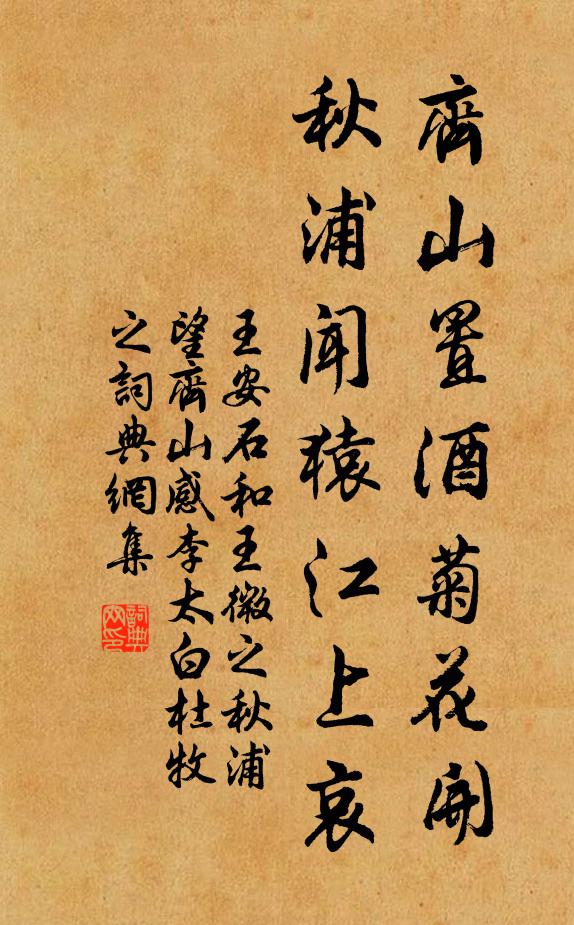 齊山置酒菊花開
秋浦聞猿江上哀
王安石和王徽之秋浦
望齊山感李太白杜牧
之詞典網集
詞典網印